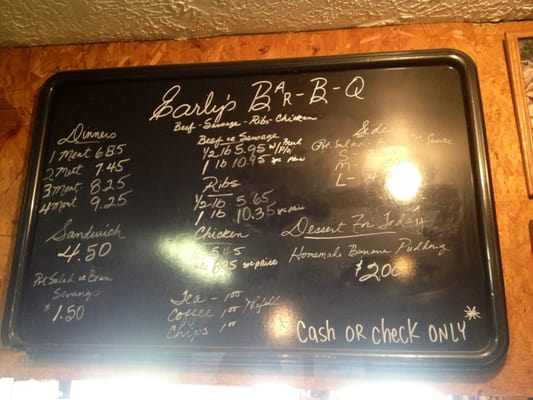 Early's BAR-B-Q
Beef-Sausage-Ribs-Chicken
Dinners
1 Meat 6.85
2 Meat 7.45
3 Meat 8.25
4 Meat 9.25
Sandwich
4.50
Pot Salad or Bean
Servings
$1.50
Beef or Sausage
1/2 lb 5.95
1 lb 10.95
Ribs
1/2 lb 5.65
1 lb 10.35
Chicken
5.45
6.95 price
Tea - 1.00
Coffee 1.00 / Refill
Chips 1.00
Side
Pot. Salad - Sauce
S -
M -
L -
Dessert For Today
Homemade Banana Pudding
$2.00
* Cash or check ONLY *